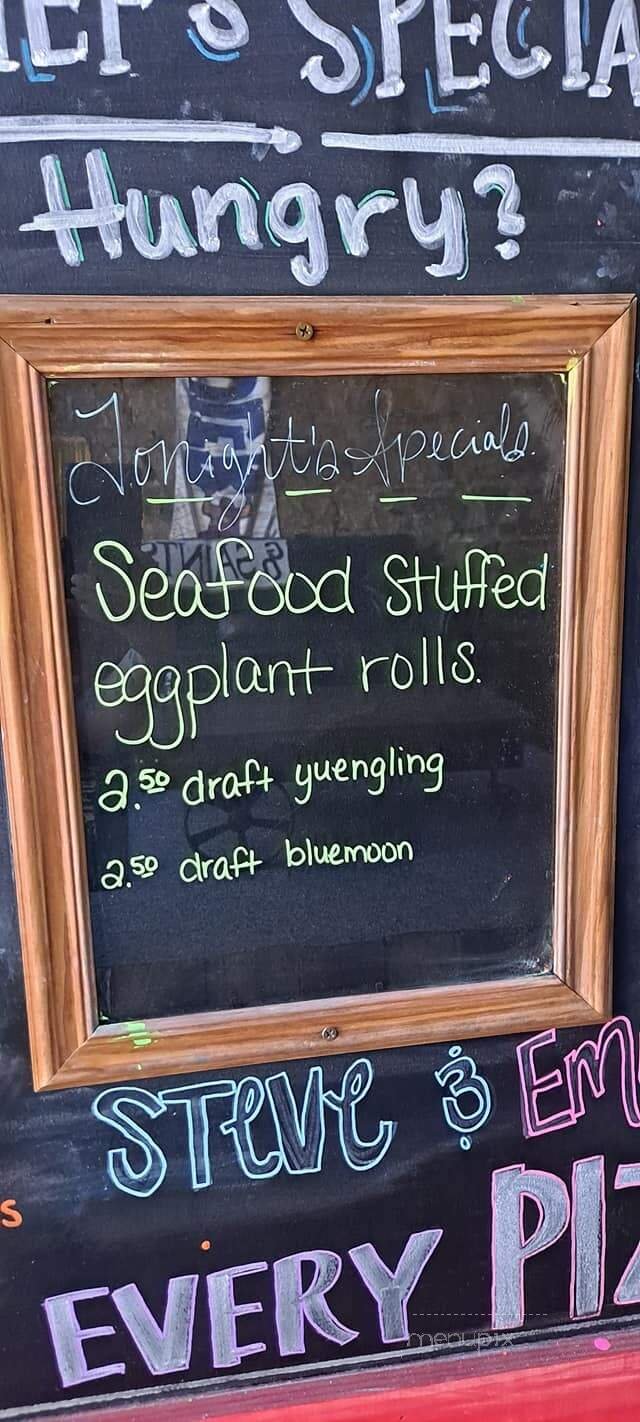 Hungry?
Tonight's Specials.
Seafood Stuffed
eggplant rolls.
2.50 draft yuengling
2.50 draft bluemoon
STeVe &
EVERY
menupix